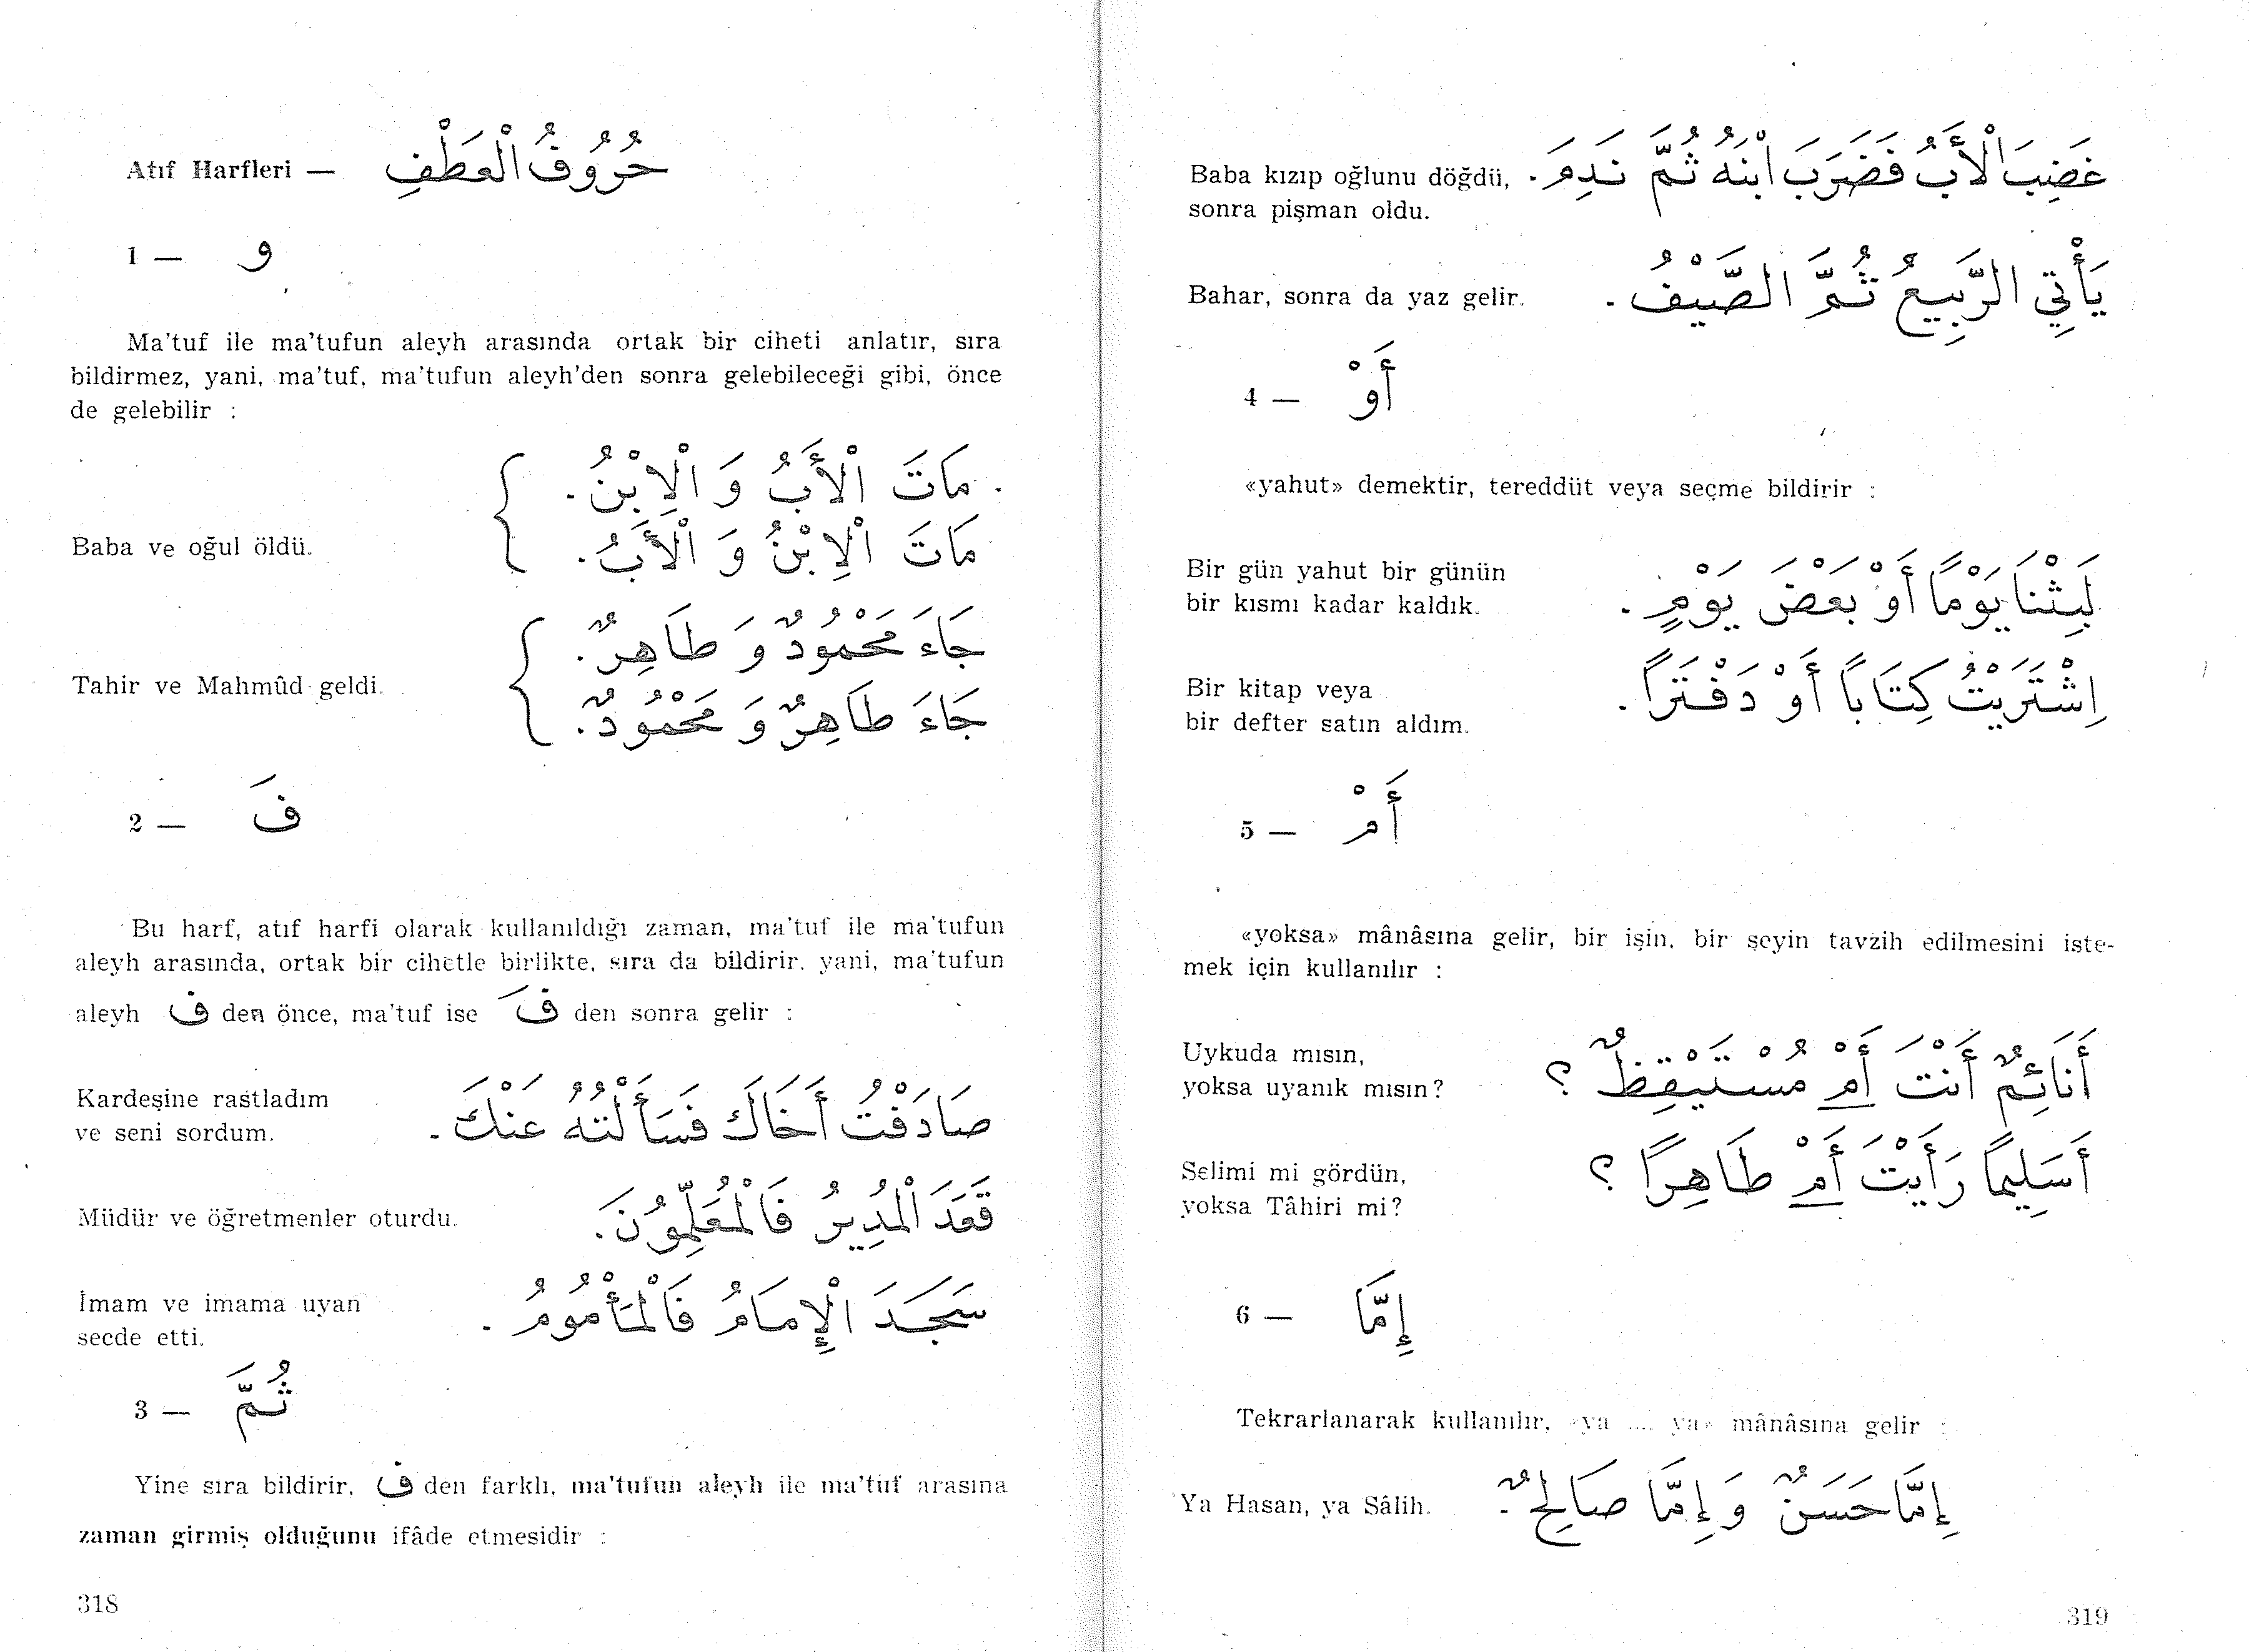 Atıf Harfleri — حُرُوفُ الْعَطْفِ
1 — و
Ma'tuf ile ma'tufun aleyh arasında ortak bir ciheti anlatır, sıra
bildirmez, yani, ma'tuf, ma'tufun aleyh'den sonra gelebileceği gibi, önce
de gelebilir :
مَاتَ الْأَبُ وَ الْاِبْنُ.
Baba ve oğul öldü.
مَاتَ الْاِبْنُ وَ الْأَبُ.
جَاءَ مَحْمُودٌ وَ طَاهِرٌ.
Tahir ve Mahmûd geldi.
جَاءَ طَاهِرٌ وَ مَحْمُودٌ.
2 — فَ
Bu harf, atıf harfi olarak kullanıldığı zaman, ma'tuf ile ma'tufun
aleyh arasında, ortak bir cihetle birlikte, sıra da bildirir. yani, ma'tufun
aleyh ف den önce, ma'tuf ise فَ den sonra gelir :
Kardeşine rastladım صَادَفْتُ أَخَاكَ فَسَأَلْتُهُ عَنْكَ.
ve seni sordum.
Müdür ve öğretmenler oturdu. قَعَدَ الْمُدِيرُ فَالْمُعَلِّمُونَ.
İmam ve imama uyan سَجَدَ الْإِمَامُ فَالْمَأْمُومُ.
secde etti.
3 — ثُمَّ
Yine sıra bildirir, ف den farklı, ma'tufun aleyh ile ma'tuf arasına
zaman girmiş olduğunu ifâde etmesidir :
318
Baba kızıp oğlunu döğdü, غَضِبَ الْأَبُ فَضَرَبَ ابْنَهُ ثُمَّ نَدِمَ.
sonra pişman oldu.
Bahar, sonra da yaz gelir. يَأْتِي الرَّبِيعُ ثُمَّ الصَّيْفُ.
4 — أَوْ
«yahut» demektir, tereddüt veya seçme bildirir :
Bir gün yahut bir günün لَبِثْنَا يَوْمًا أَوْ بَعْضَ يَوْمٍ.
bir kısmı kadar kaldık.
Bir kitap veya اِشْتَرَيْتُ كِتَابًا أَوْ دَفْتَرًا.
bir defter satın aldım.
5 — أَمْ
«yoksa» mânâsına gelir, bir işin, bir şeyin tavzih edilmesini iste-
mek için kullanılır :
Uykuda mısın, أَنَائِمٌ أَنْتَ أَمْ مُسْتَيْقِظٌ ؟
yoksa uyanık mısın?
Selimi mi gördün, أَسَلِيمًا رَأَيْتَ أَمْ طَاهِرًا ؟
yoksa Tâhiri mi?
6 — إِمَّا
Tekrarlanarak kullanılır, «ya .... ya» mânâsına gelir :
Ya Hasan, ya Sâlih. إِمَّا حَسَنٌ وَ إِمَّا صَالِحٌ.
319